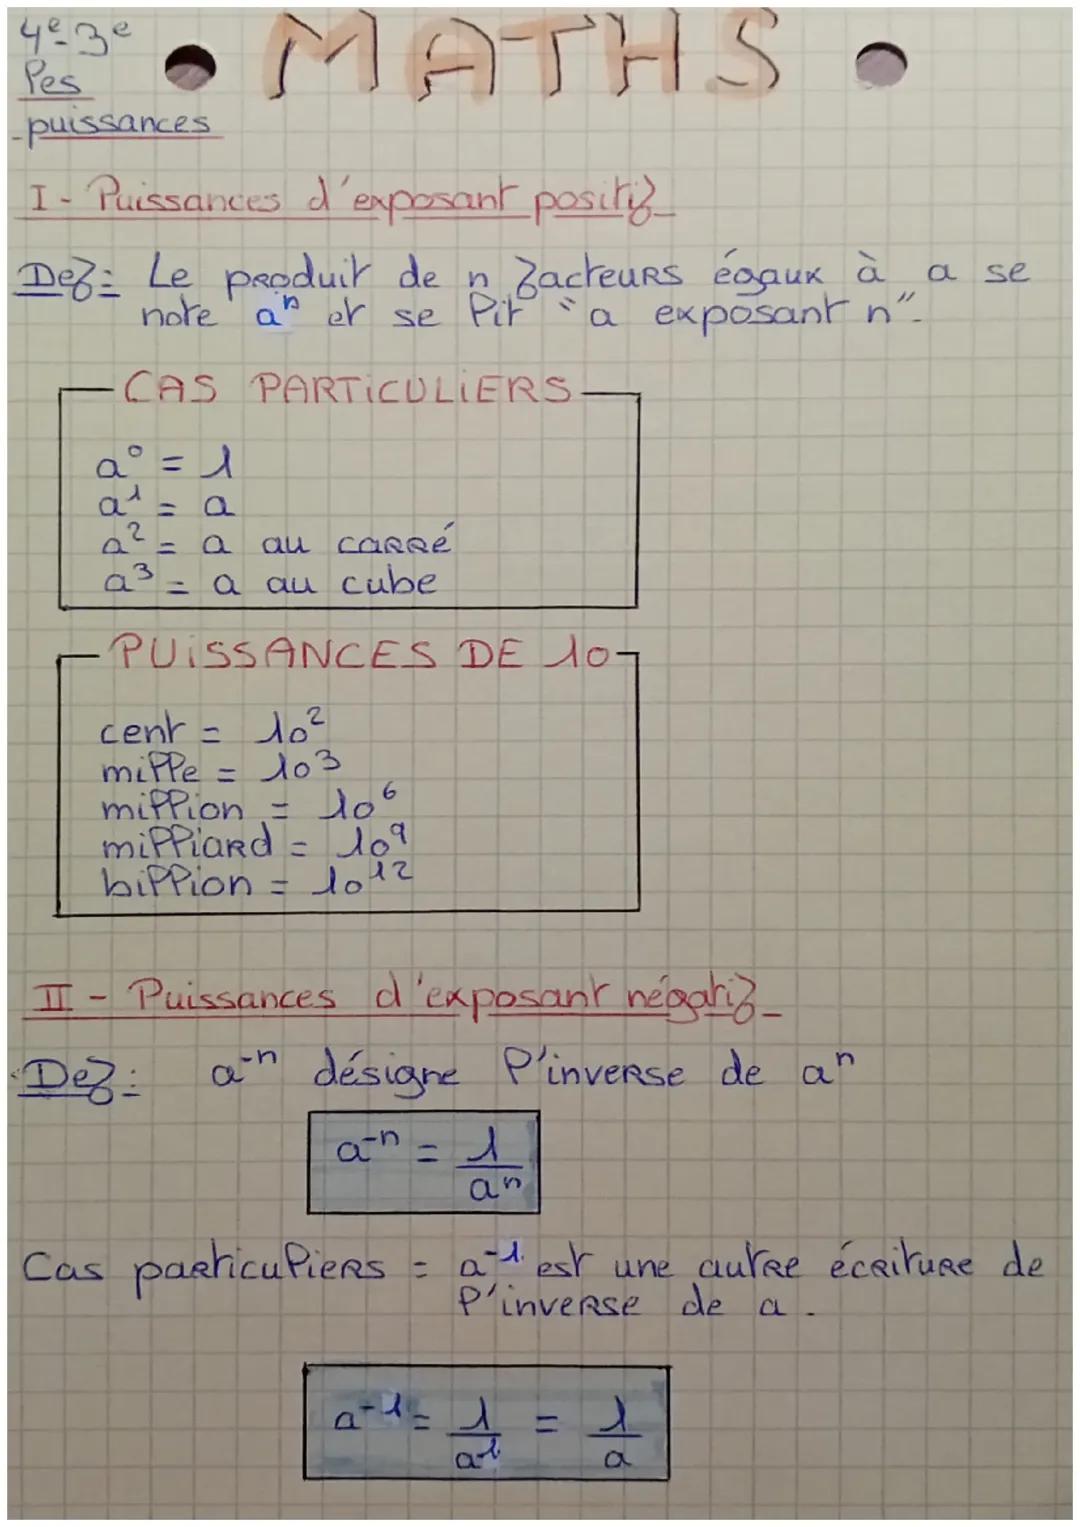 4e-3e
les
puissances
MATHS
I - Puissances d'exposant positif
Def: Le produit de n facteurs égaux à a se
note aⁿ et se lit "a exposant n".
CAS PARTICULIERS
a⁰ = 1
a¹ = a
a² = a au carré
a³ = a au cube
PUISSANCES DE 10
cent = 10²
mille = 10³
million = 10⁶
milliard = 10⁹
billion = 10¹²
II - Puissances d'exposant négatif
Def: a⁻ⁿ désigne l'inverse de aⁿ
a⁻ⁿ = 1/aⁿ
Cas particuliers = a⁻¹ est une autre écriture de
l'inverse de a.
a⁻¹ = 1/a¹ = 1/a